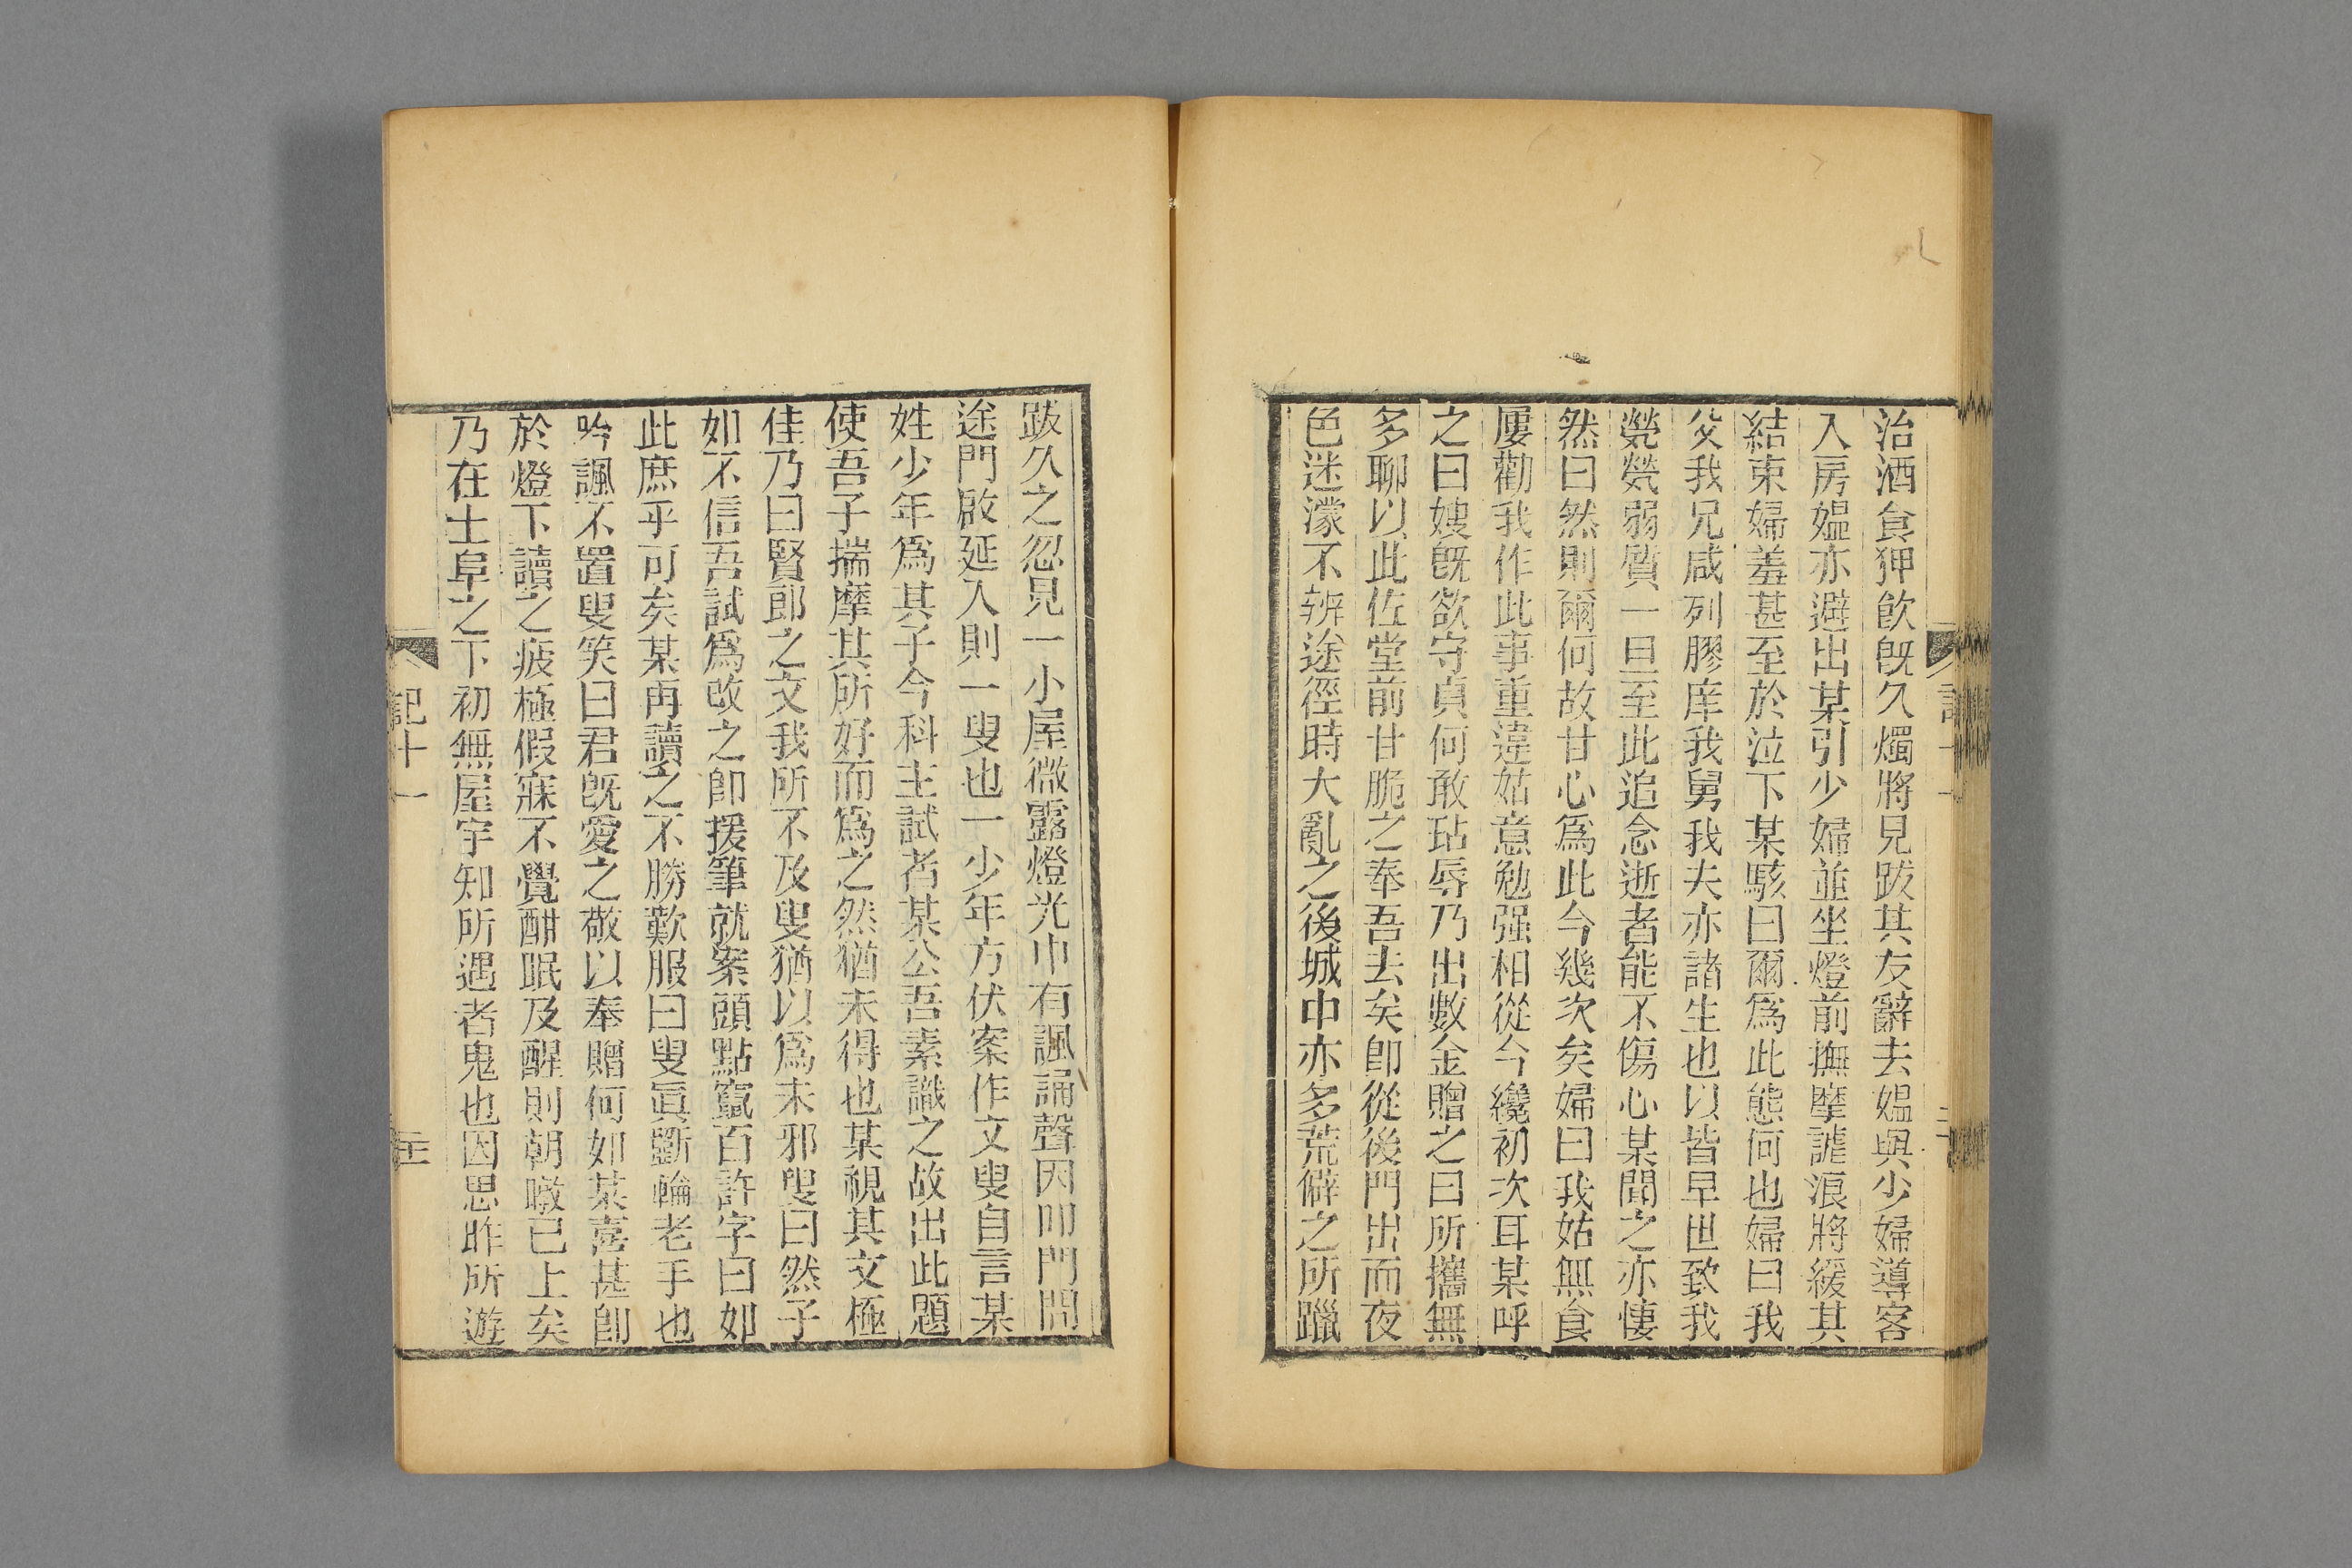 治酒食狎飲旣久燭將見跋其友辭去媼與少婦導客
入房媼亦避出某引少婦並坐燈前撫摩謔浪將緩其
結束婦羞甚至於泣下某駭曰爾爲此態何也婦曰我
父我兄咸列膠庠我舅我夫亦諸生也以皆早世致我
煢煢弱質一旦至此追念逝者能不傷心某聞之亦悽
然曰然則爾何故甘心爲此今幾次矣婦曰我姑無食
屢勸我作此事重違姑意勉强相從今纔初次耳某呼
之曰嫂旣欲守貞何敢玷辱乃出數金贈之曰所攜無
多聊以此佐堂前甘脆之奉吾去矣卽從後門出而夜
色迷濛不辨途徑時大亂之後城中亦多荒僻之所躐
跋久之忽見一小屋微露燈光中有諷誦聲因叩門問
途門啟延入則一叟也一少年方伏案作文叟自言某
姓少年爲其子今科主試者某公吾素識之故出此題
使吾子揣摩其所好而爲之然猶未得也某視其文極
佳乃曰賢郎之文我所不及叟猶以爲未邪叟曰然子
如不信吾試爲改之卽援筆就案頭點竄百許字曰如
此庶乎可矣某再讀之不勝歎服曰叟眞斲輪老手也
吟諷不置叟笑曰君旣愛之敬以奉贈何如某喜甚卽
於燈下讀之疲極假寐不覺酣眠及醒則朝暾已上矣
乃在土阜之下初無屋宇知所遇者鬼也因思昨所遊
記十一